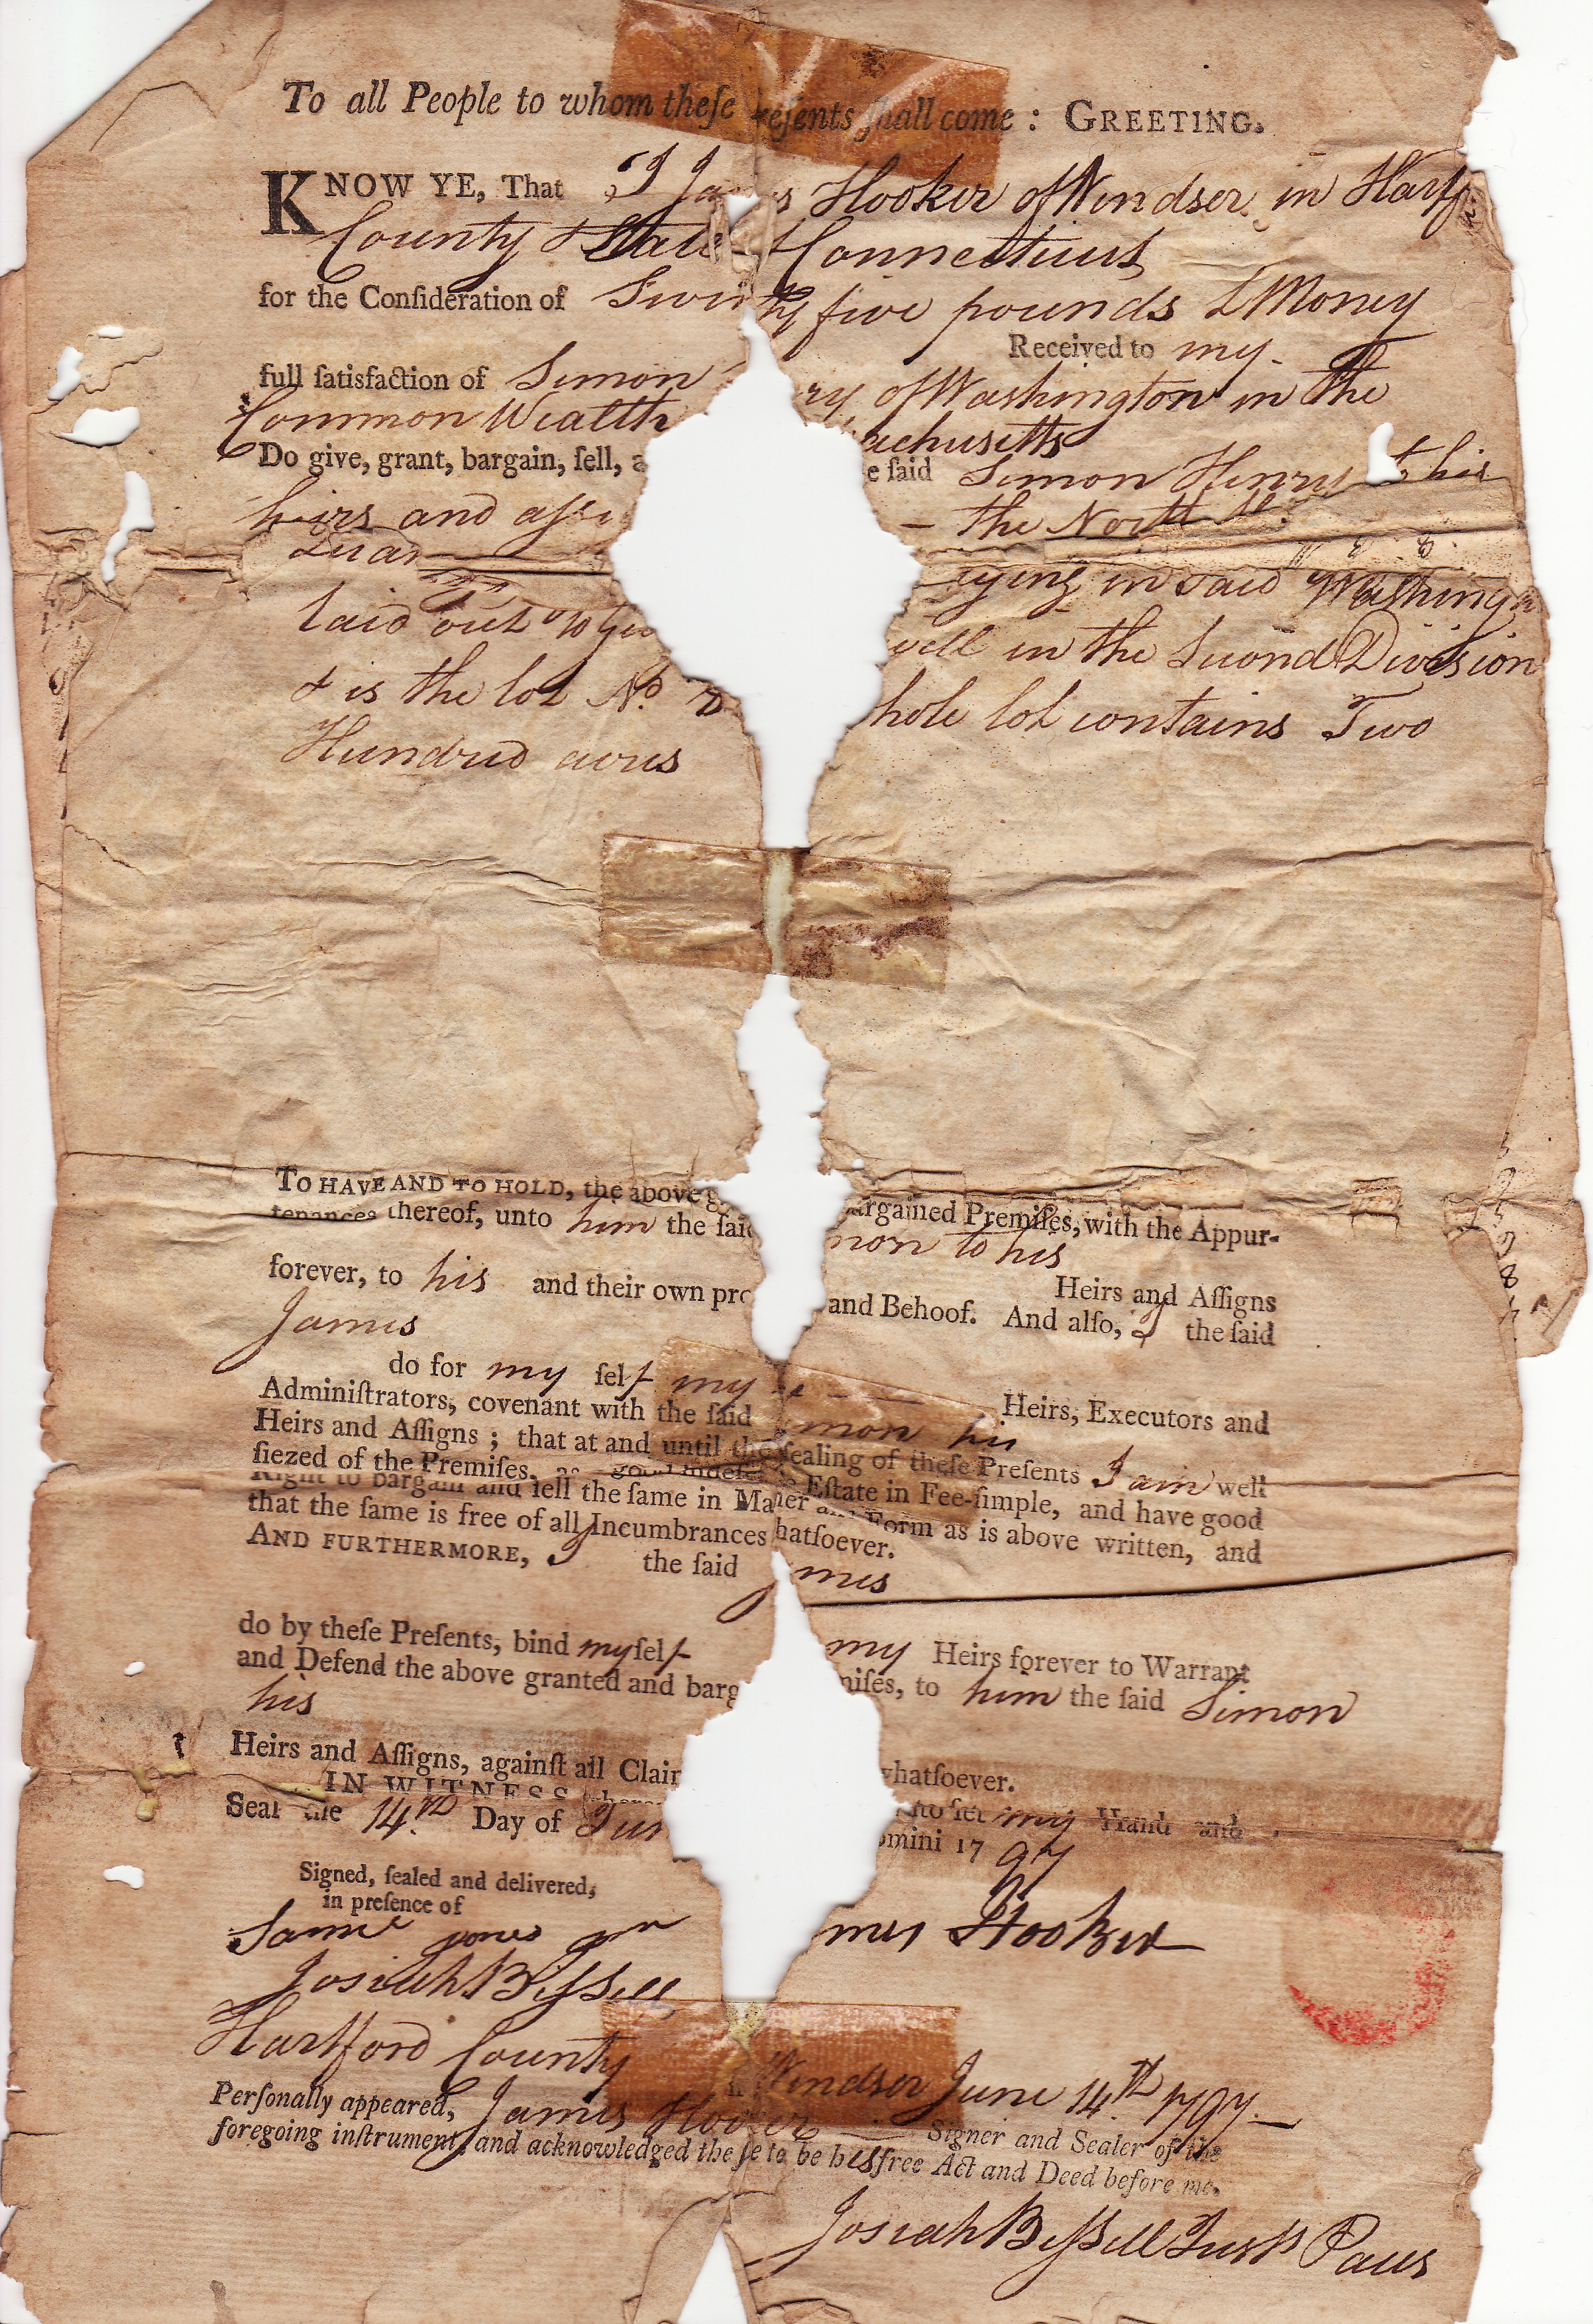 To all People to whom theſe reſents ſhall come : GREETING.
KNOW YE, That I Ja s Hooker of Windsor in Hartf
County & State Connecticut
for the Conſideration of Twenty five pounds L Money
Received to my
full ſatisfaction of Simon ry of Washington in the
Common Wealth achusetts
Do give, grant, bargain, ſell, a e ſaid Simon Henry & his
heirs and aſsi – the North
Quar
lying in said Washing
laid out to well in the Second Division
& is the lot No. hole lot contains Two
Hundred acres
TO HAVE AND TO HOLD, the above g argained Premiſes, with the Appur-
tenances thereof, unto him the ſaid mon to his
Heirs and Aſſigns
forever, to his and their own pro and Behoof. And alſo, I the ſaid
James
do for my ſelf my Heirs, Executors and
Adminiſtrators, covenant with the ſaid mon his
Heirs and Aſſigns ; that at and until the ſealing of theſe Preſents I am well
ſiezed of the Premiſes, as good indefe Eſtate in Fee-ſimple, and have good
Right to bargain and ſell the ſame in Ma ner and Form as is above written, and
that the ſame is free of all Incumbrances hatſoever.
AND FURTHERMORE, I the ſaid James
do by theſe Preſents, bind myſelf my Heirs forever to Warrant
and Defend the above granted and barg miſes, to him the ſaid Simon
his
Heirs and Aſſigns, againſt all Clai whatſoever.
IN WITNESS to ſet my Hand and
Seal the 14th Day of Jun omini 1797
Signed, ſealed and delivered,
in preſence of
Saml Jones mes Hooker
Josiah Biſsell
Hartford County Windsor June 14th 1797
Perſonally appeared, James Hooker Signer and Sealer of the
foregoing inſtrument, and acknowledged the ſe to be his free Act and Deed before me.
Josiah Biſsell Just Paus